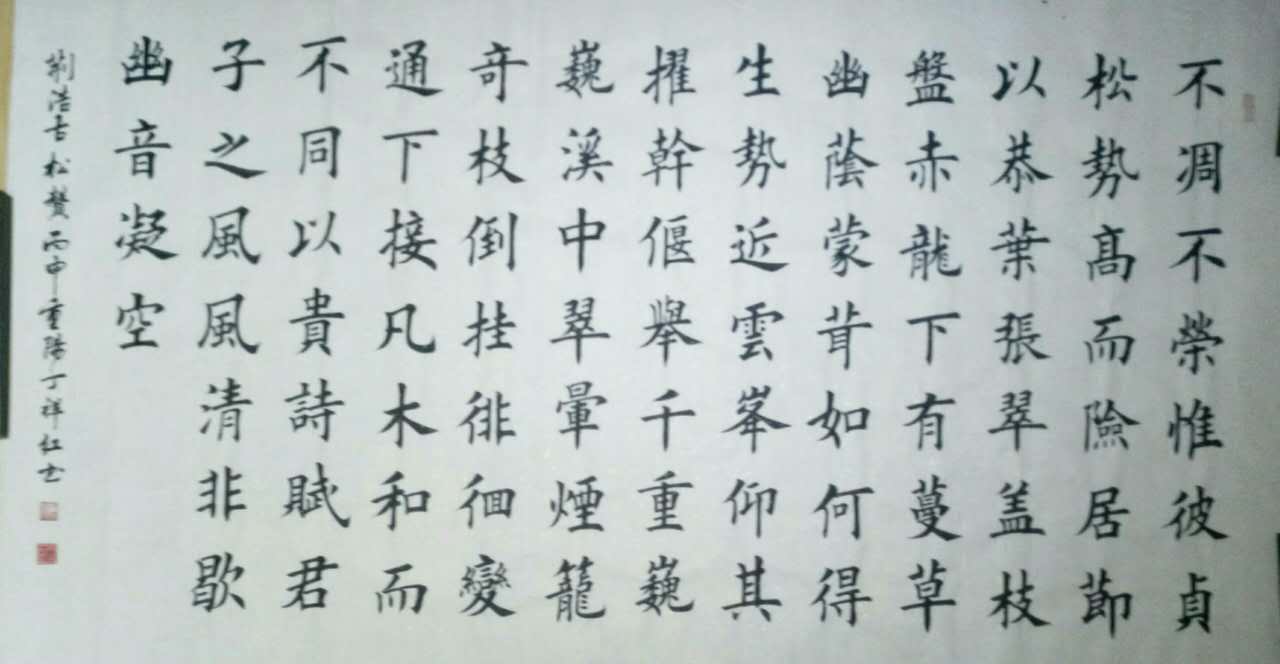 不凋不榮惟彼貞
松勢高而險居節
以恭葉張翠盖枝
盤赤龍下有蔓草
幽蔭蒙茸如何得
生勢近雲峯仰其
擢幹偃舉千重巍
巍溪中翠暈煙籠
奇枝倒挂徘徊變
通下接凡木和而
不同以貴詩賦君
子之風風清非歇
幽音凝空
荆浩古松贊丙申重陽丁祥红书